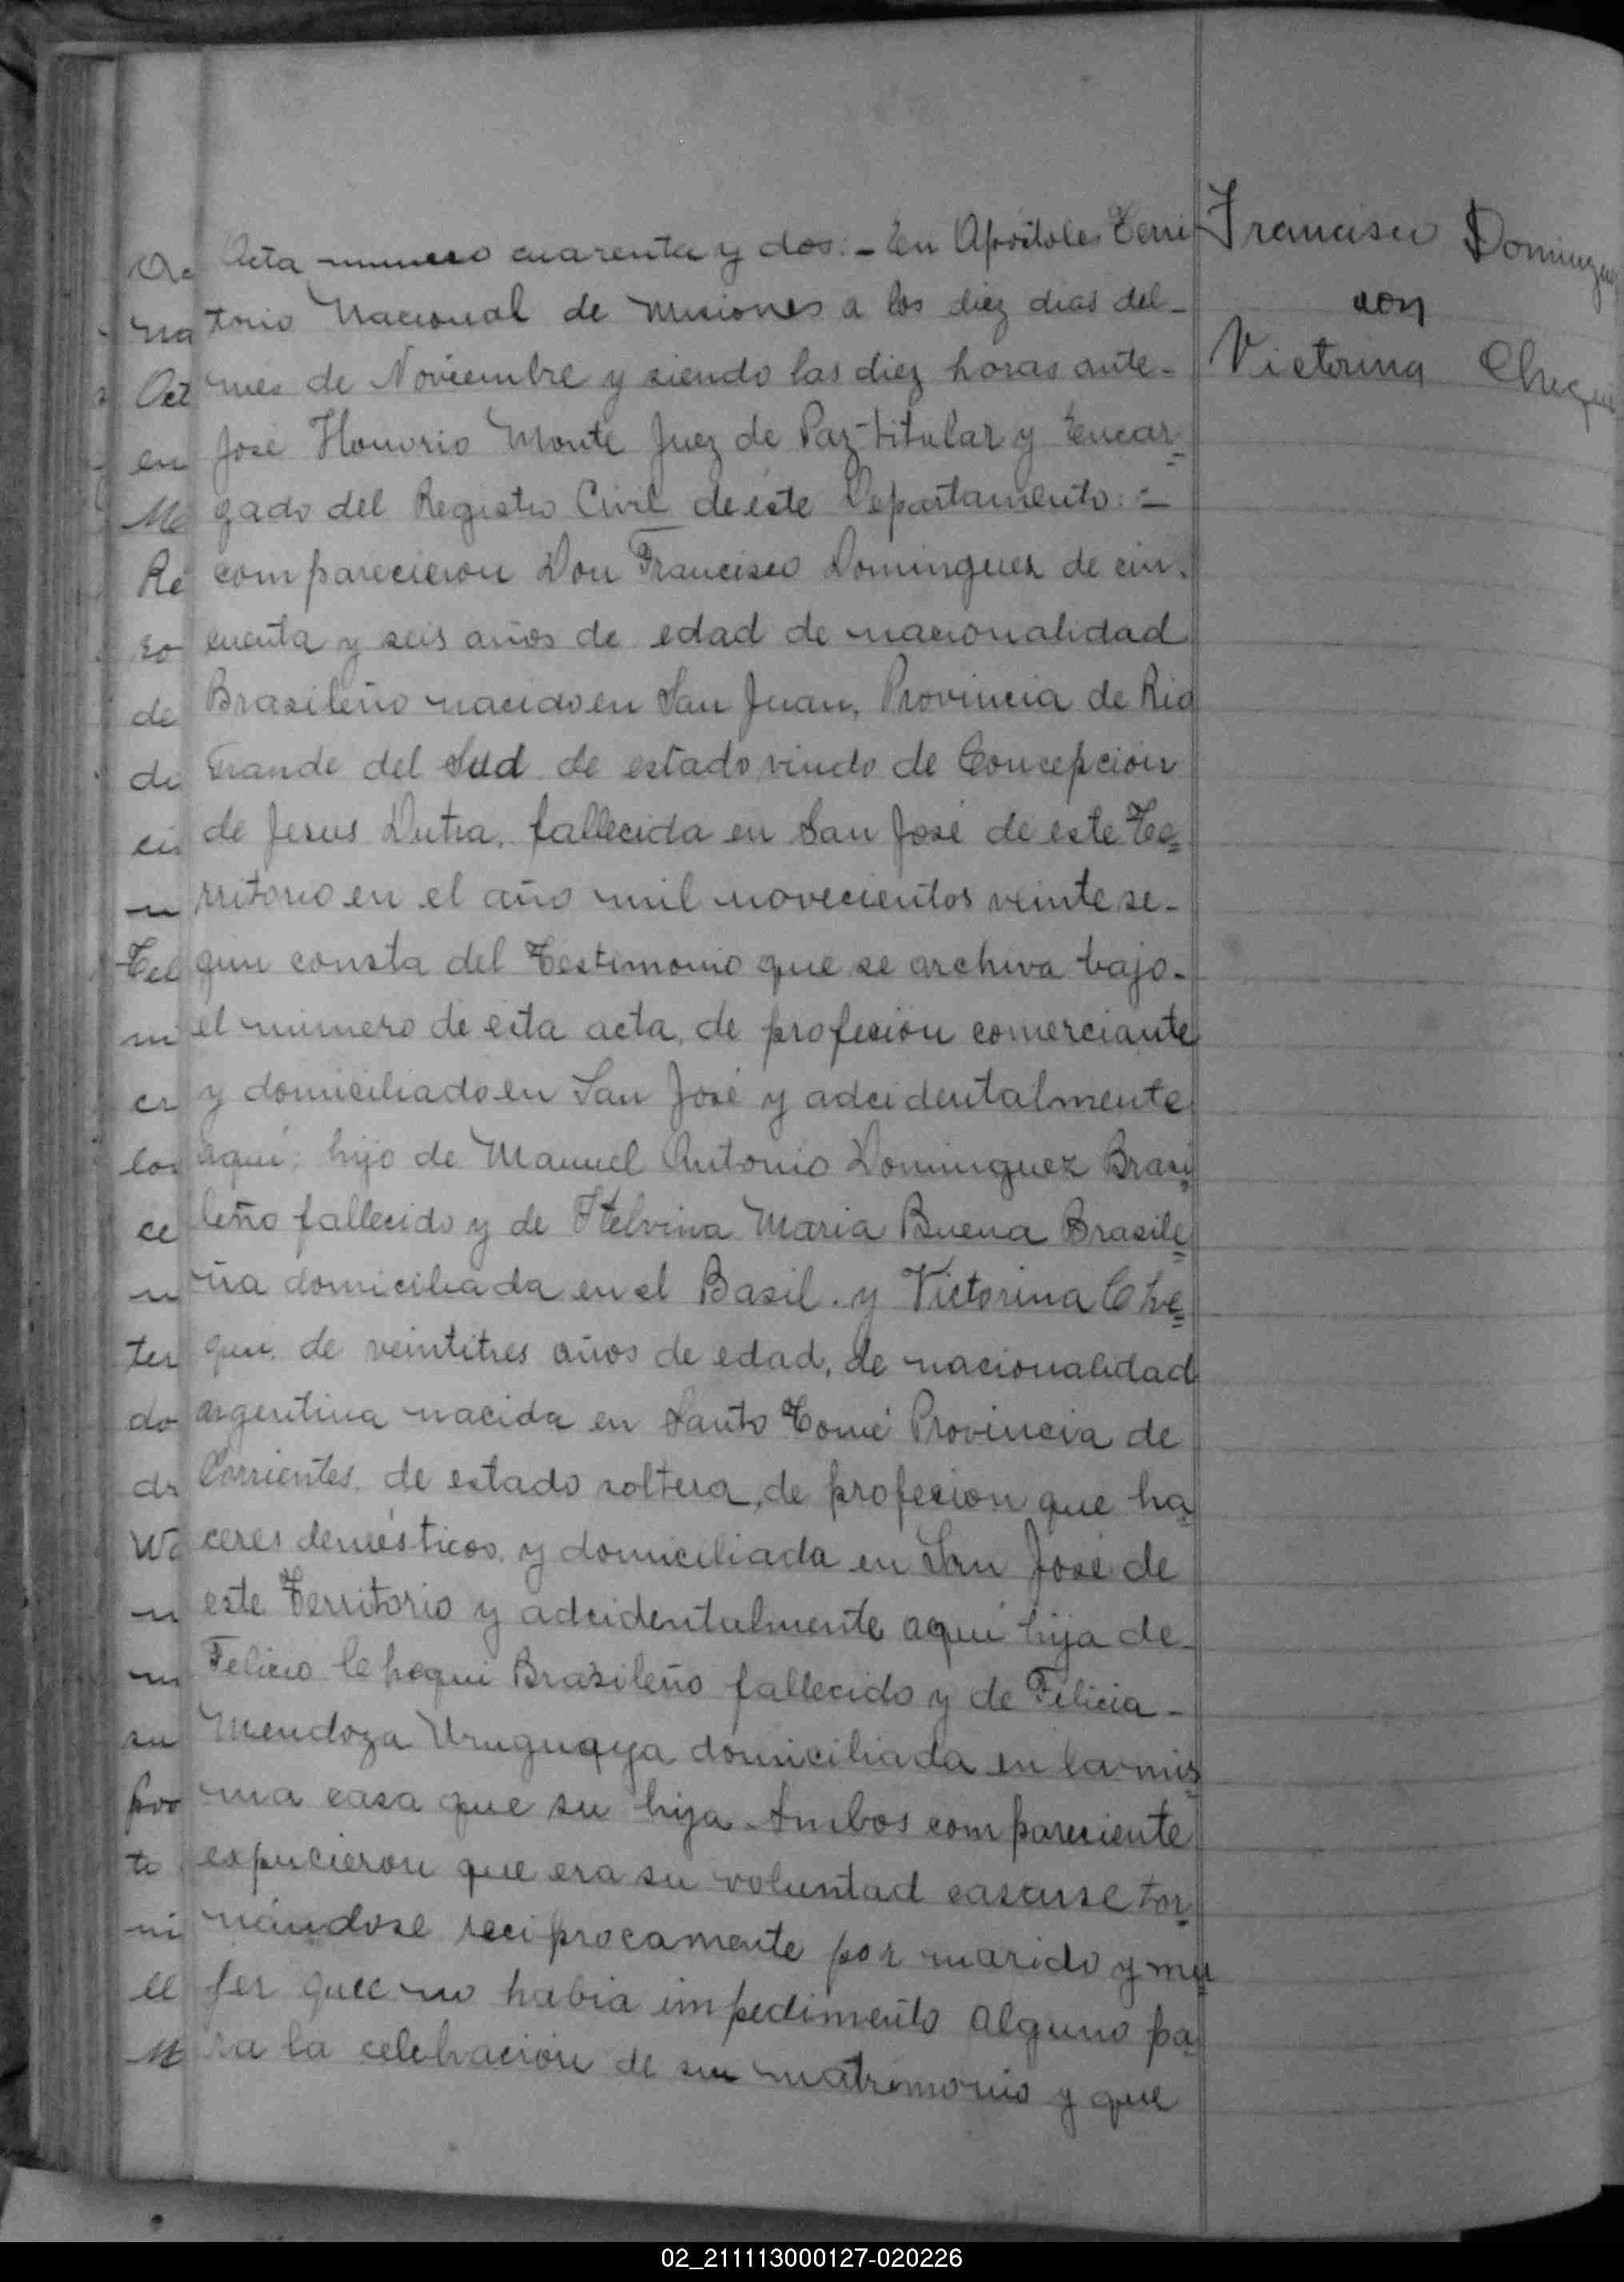 Acta numero cuarenta y dos:- En Apóstoles Terri
torio Nacional de Misiones a los diez dias del-
mes de Noviembre y siendo las diez horas ante-
José Honorio Monte Juez de Paz titular y Encar-
gado del Registro Civil de éste Departamento:-
comparecieron Don Francisco Dominguez de cin-
cuenta y seis años de edad de nacionalidad
Brasileño nacido en San Juan, Provincia de Rio
Grande del Sud de estado viudo de Concepción
de Jesus Dutra, fallecida en San José de este Te-
rritorio en el año mil novecientos veinte se-
gun consta del Testimonio que se archiva bajo-
el numero de esta acta, de profesion comerciante
y domiciliado en San José y adcidentalmente
aqui; hijo de Manuel Antonio Dominguez Brasi-
leño fallecido y de Etelvina Maria Buena Brasile-
ña domiciliada en el Basil. y Victorina Che-
qui, de veintitres años de edad, de nacionalidad
argentina nacida en Santo Tomé Provincia de
Corrientes, de estado soltera, de profesion que ha-
ceres demésticos, y domiciliada en San José de
este Territorio y adcidentalmente aqui hija de-
Felicio Chequi Brasileño fallecido y de Felicia-
Mendoza Uruguaya domiciliada en la mis-
ma casa que su hija. Ambos compareciente
expucieron que era su voluntad casarse tor-
nándose reciprocamente por marido y mu-
jer que no habia impedimento alguno pa-
ra la celebración de su matrimonio y que
Francisco Dominguez
con
Victorina